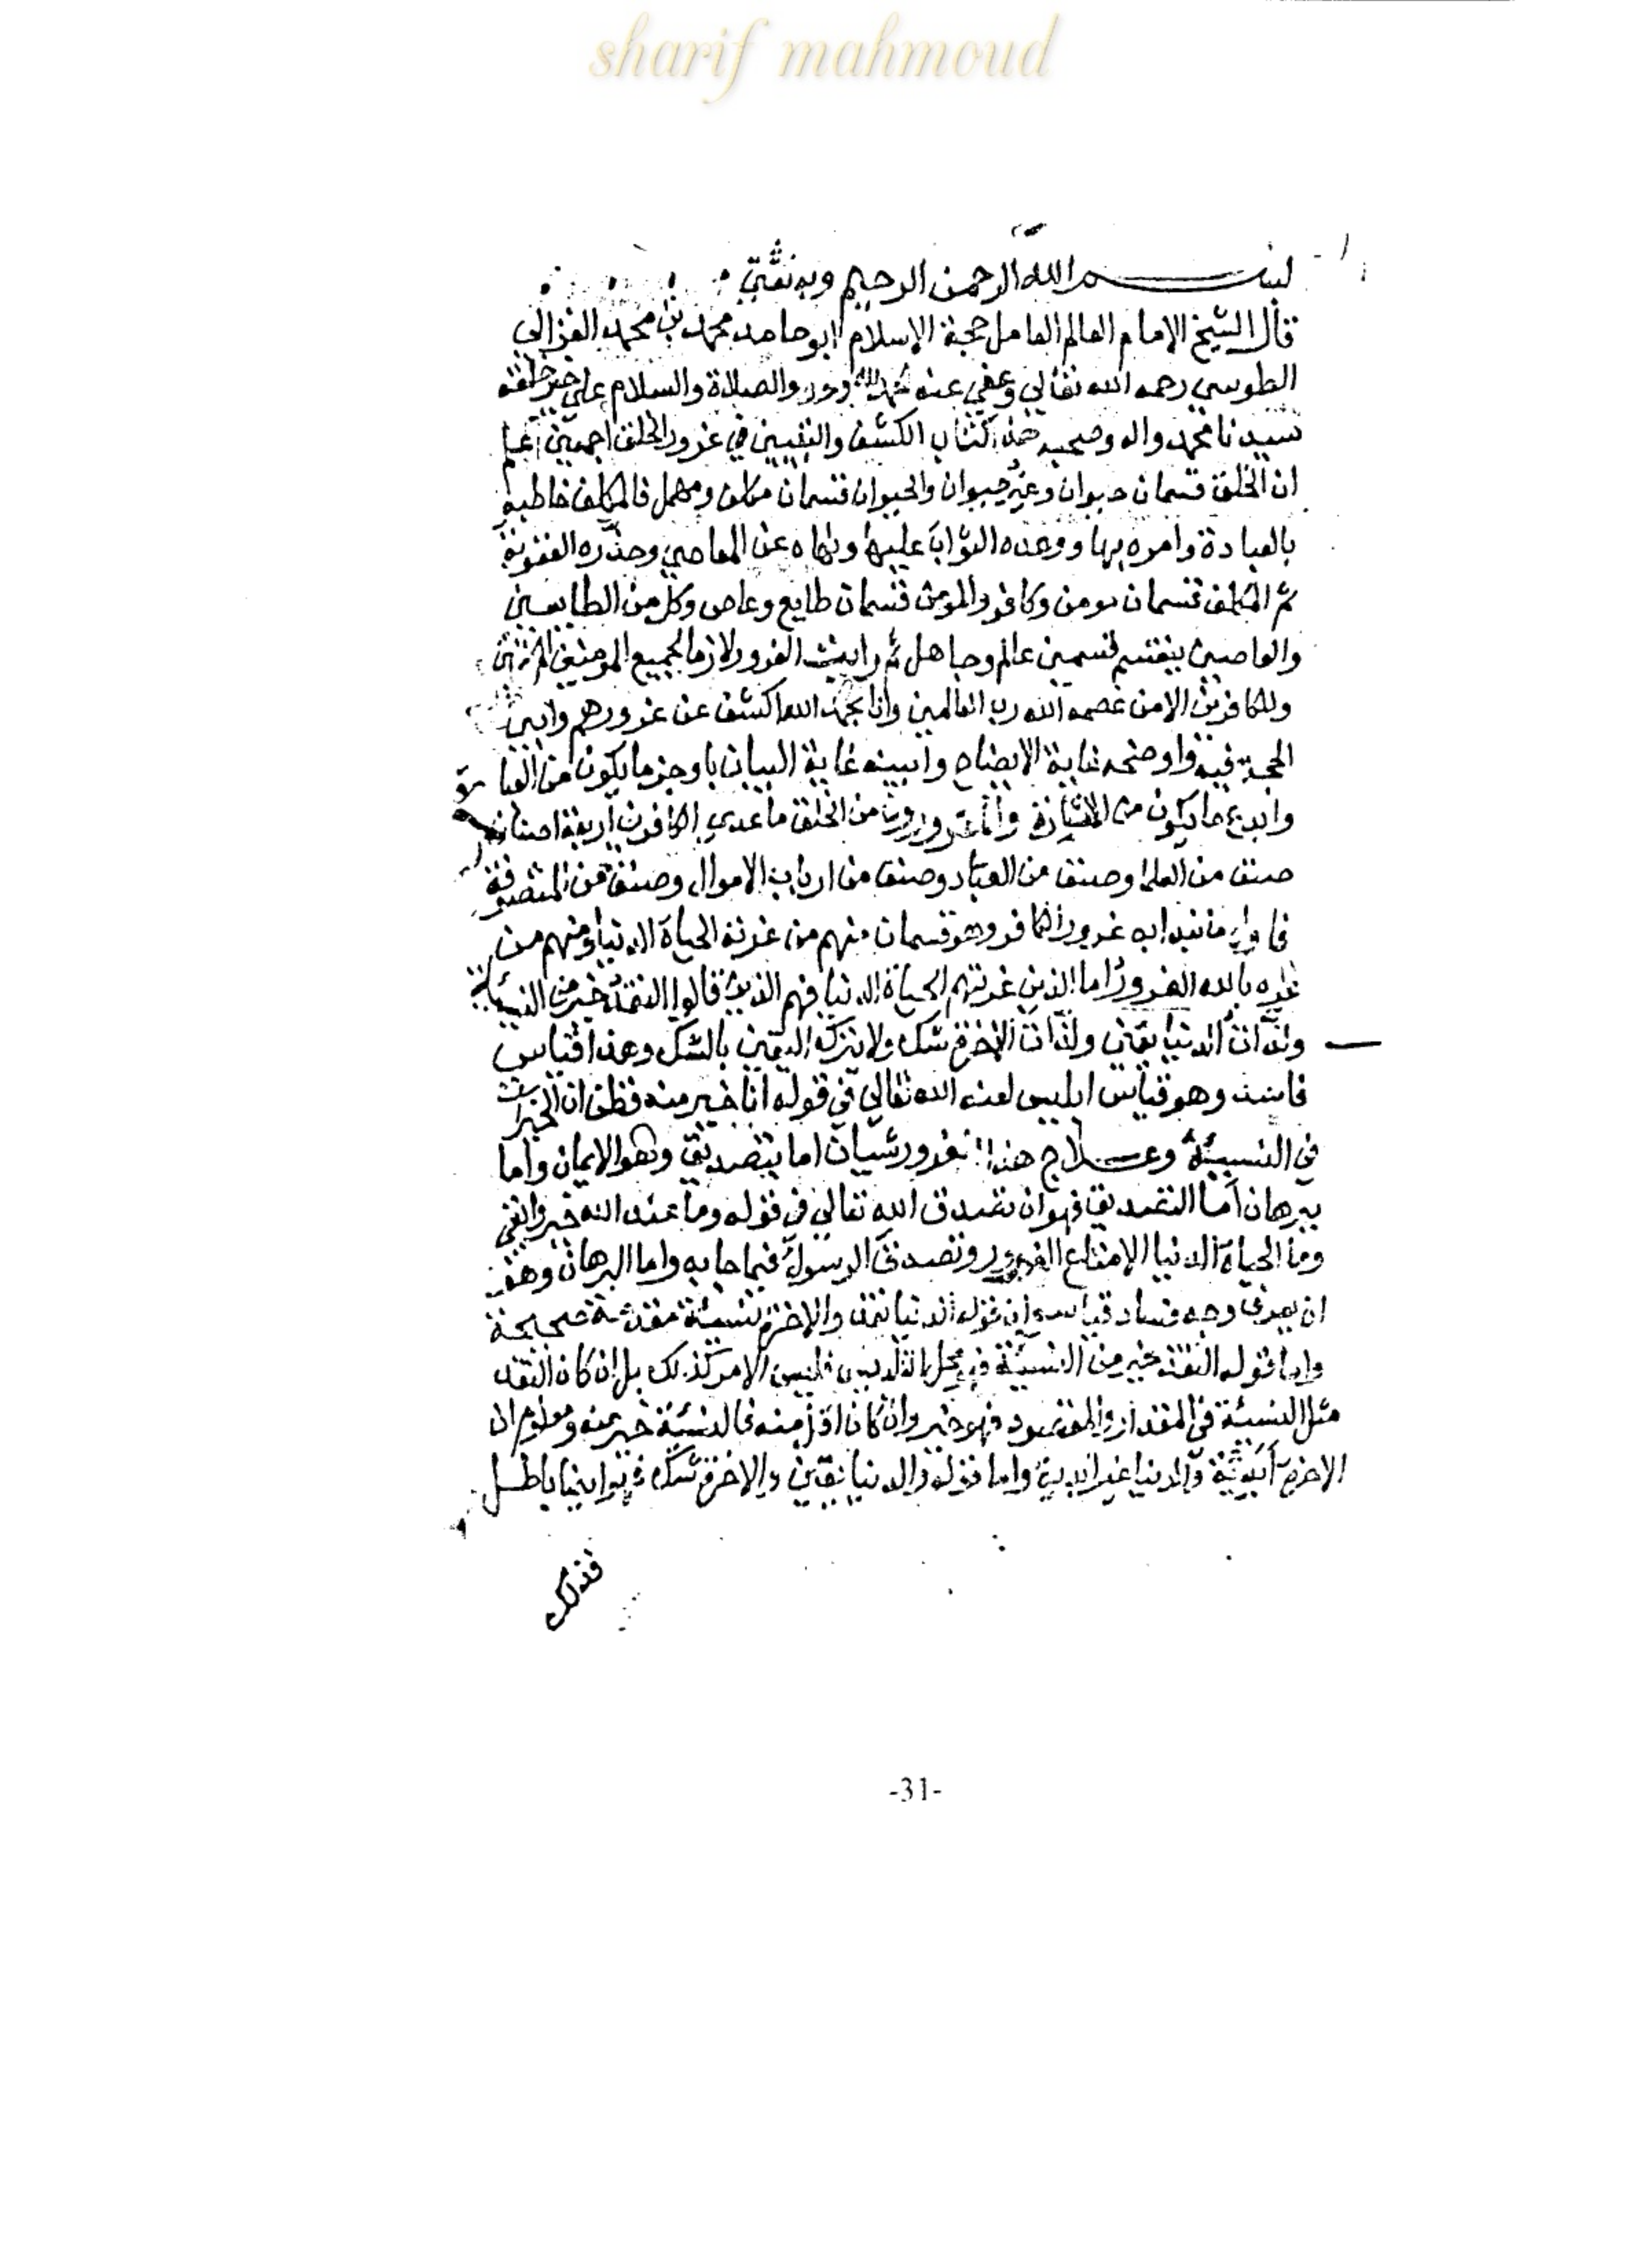 sharif mahmoud
بسم الله الرحمن الرحيم وبه ثقتي
قال الشيخ الامام العالم العامل حجة الاسلام ابو حامد محمد بن محمد الغزالي
الطوسي رحمه الله تعالي وعفي عنه الحمد لله وحده والصلاة والسلام علي خير خلقه
سيدنا محمد واله وصحبه هذا كتاب الكشف والتبيين في غرور الخلق اجمعين اعلم
ان الخلق قسمان حيوان وغير حيوان والحيوان قسمان مكلف ومهمل فالمكلف خاطبه
بالعبادة وامره بها ووعده الثواب عليها ونهاه عن المعاصي وحذره العقوبة
ثم المكلف قسمان مومن وكافر والمومن قسمان طايع وعاص وكل من الطايعين
والعاصين ينقسم قسمين عالم وجاهل ثم رايت الغرور لازما لجميع المومنين
وللكافرين الا من عصمه الله رب العالمين وانا بحمد الله اكشف عن غرورهم وابين
الحجة فيه واوضحه غاية الايضاح وابينه غاية البيان باوجز ما يكون من العبارة
وابدع ما يكون من الاشارة والمغرورون من الخلق ما عدي الكافرين اربعة اصناف
صنف من العلما وصنف من العباد وصنف من ارباب الاموال وصنف من المتصوفة
فاول ما نبدا به غرور الكافر وهو قسمان منهم من غرته الحياة الدنيا ومنهم من
غره بالله الغرور اما الذين غرتهم الحياة الدنيا فهم الذين قالوا النقد خير من النسيئة
ولذات الدنيا يقين ولذات الاخرة شك ولا يترك اليقين بالشك وهذا قياس
فاسد وهو قياس ابليس لعنه الله تعالي في قوله انا خير منه فظن ان الخيرات
في النسيئة وعلاج هذا الغرور شيان اما بتصديق وهو الايمان واما
ببرهان اما التصديق فهو ان تصدق الله تعالي في قوله وما عند الله خير وابقي
وما الحياة الدنيا الا متاع الغرور وتصدق الرسول فيما جا به واما البرهان وهو
ان يعرف وجه فساد قياسه ان قوله الدنيا نقد والاخرة نسيئة مقدمة صحيحة
واما قوله النقد خير من النسيئة فهو محل التلبيس فليس الامر كذلك بل ان كان النقد
مثل النسيئة في المقدار والمقصود فهو خير وان كان اقل منه فالنسيئة خير منه ومعلوم ان
الاخرة ابدية والدنيا غير ابدية واما قوله والدنيا يقين والاخرة شك فهو ايضا باطل
-31-